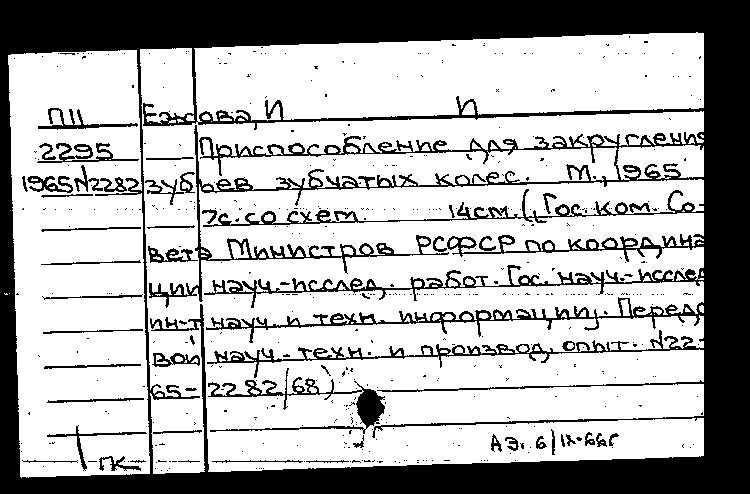 П11 Ежова, И И
2295 Приспособление для закругления
1965 N2282 зубьев зубчатых колес. М., 1965
7с. со схем. 14см. (Гос. ком. Со-
вета Министров РСФСР по координа
ции науч.-исслед. работ. Гос. науч.-исслед
ин-т науч. и техн. информации. Передо
вой науч.-техн. и производ. опыт. N22-
65-2282/68)
ГК АЭ. 6/IX-66г